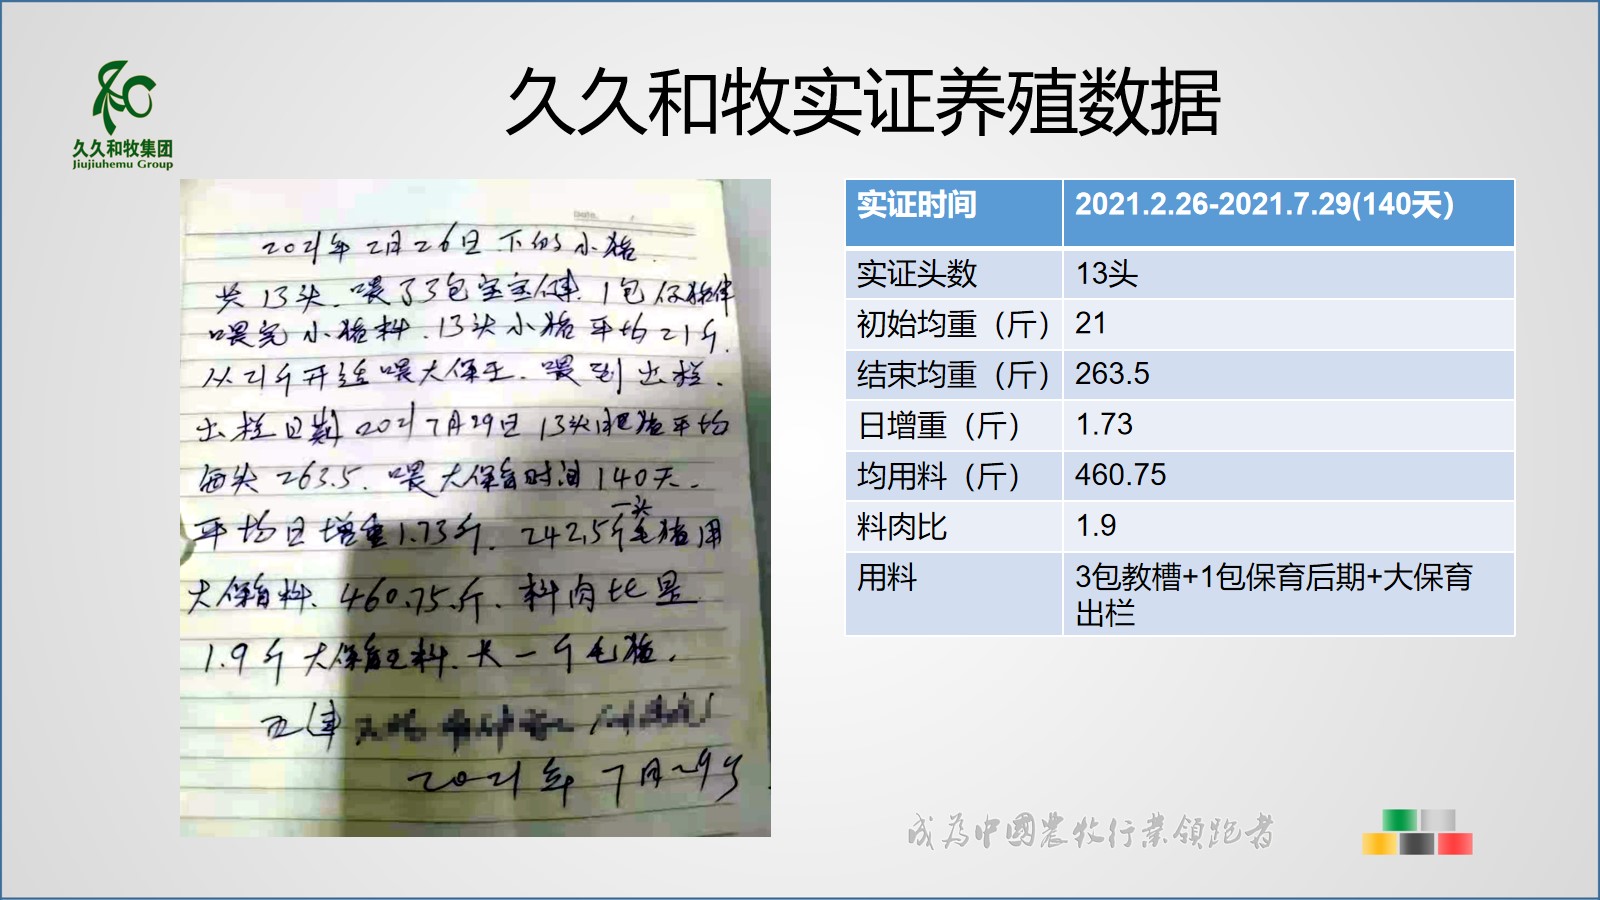 久久和牧集团
Jiujiuhemu Group
久久和牧实证养殖数据
2021年2月26日下的小猪.
共13头.喂了3包宝宝健.1包仔猪伴
喂完小猪料.13头小猪平均21斤.
从21斤开始喂大保王.喂到出栏.
出栏日期2021 7月29日 13头肥猪平均
每头263.5.喂大保育时间140天.
一头
平均日增重1.73斤. 242.5斤毛猪用
大保育料.460.75.斤.料肉比是
1.9斤大保育王料.长一斤毛猪.
2021年7月29号
实证时间 2021.2.26-2021.7.29(140天）
实证头数 13头
初始均重（斤） 21
结束均重（斤） 263.5
日增重（斤） 1.73
均用料（斤） 460.75
料肉比 1.9
用料 3包教槽+1包保育后期+大保育
出栏
成为中國農牧行業領跑者